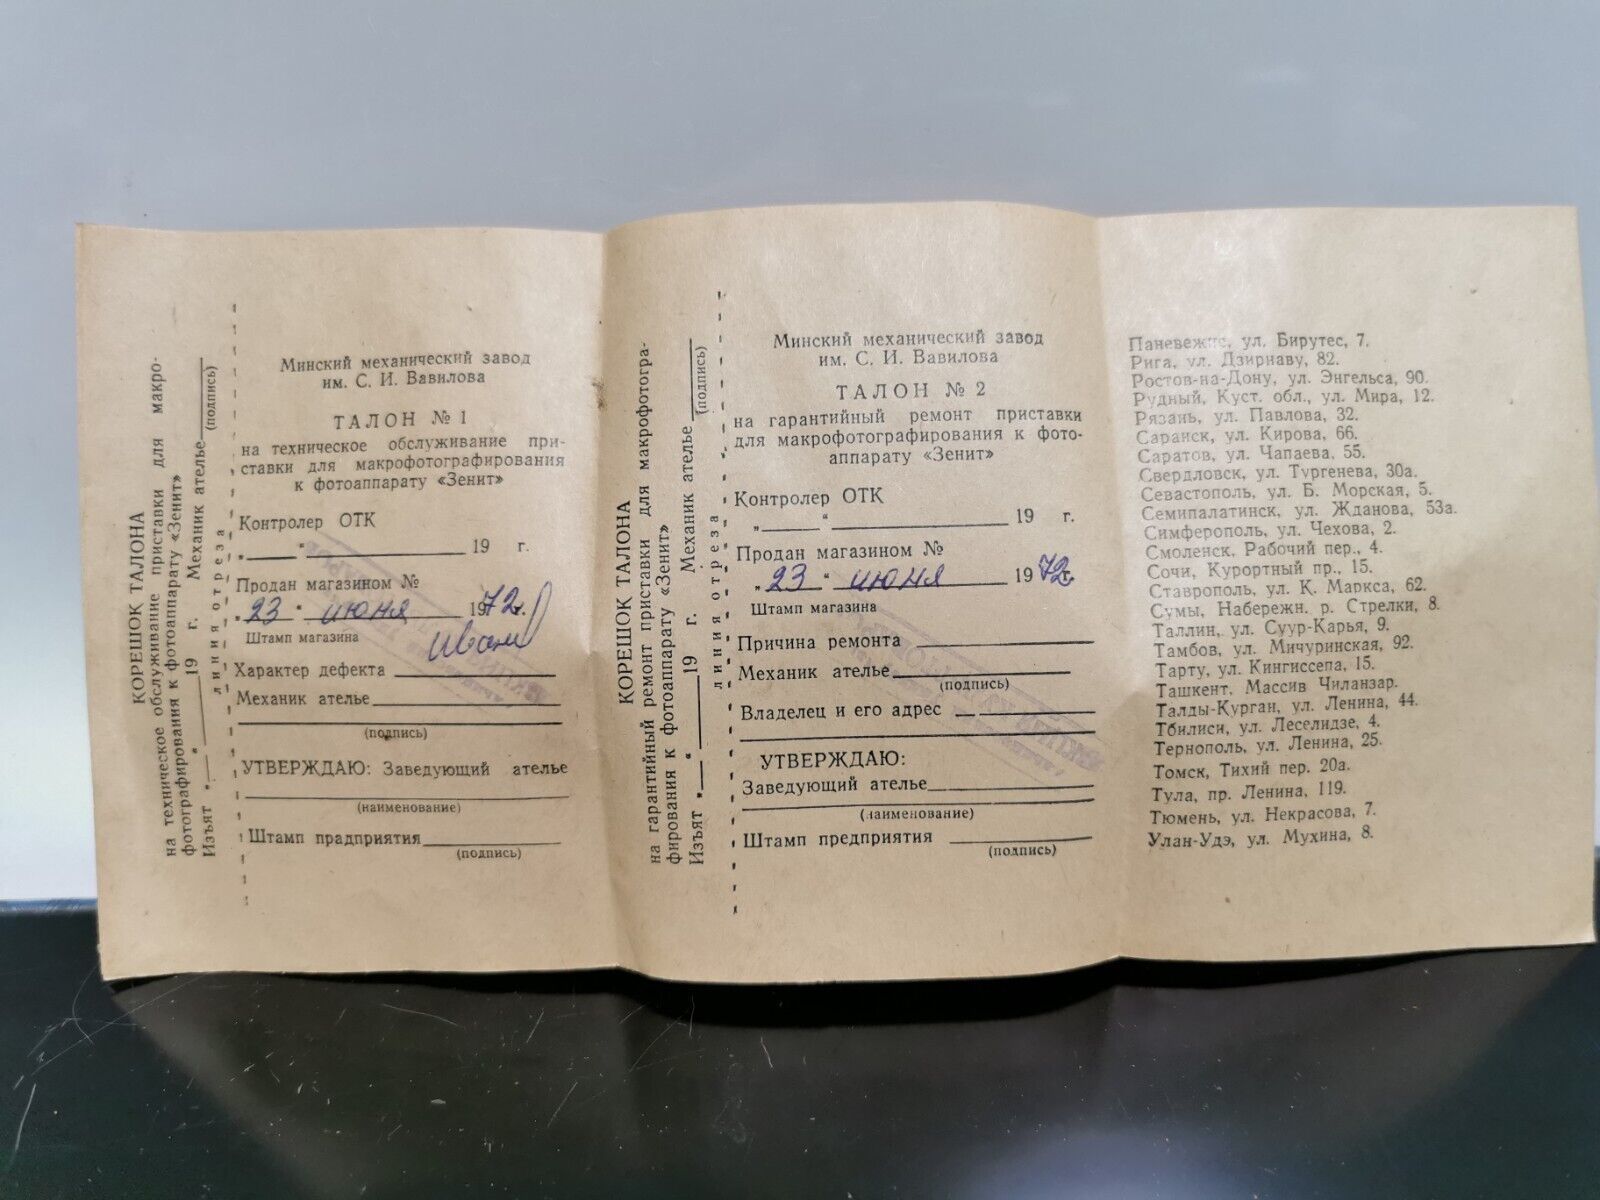 КОРЕШОК ТАЛОНА
на техническое обслуживание приставки для макро-
фотографирования к фотоаппарату «Зенит»
Изъят „ “ 19 г. Механик ателье
(подпись)
линия отреза
Минский механический завод
им. С. И. Вавилова
ТАЛОН № 1
на техническое обслуживание при-
ставки для макрофотографирования
к фотоаппарату «Зенит»
Контролер ОТК
„ “ 19 г.
Продан магазином №
„ 23 “ июня 1972г.
Штамп магазина
Характер дефекта
Механик ателье
(подпись)
УТВЕРЖДАЮ: Заведующий ателье
(наименование)
Штамп прадприятия
(подпись)
КОРЕШОК ТАЛОНА
на гарантийный ремонт приставки для макрофотогра-
фирования к фотоаппарату «Зенит»
Изъят „ “ 19 г. Механик ателье
(подпись)
линия отреза
Минский механический завод
им. С. И. Вавилова
ТАЛОН № 2
на гарантийный ремонт приставки
для макрофотографирования к фото-
аппарату «Зенит»
Контролер ОТК
„ “ 19 г.
Продан магазином №
„ 23 “ июня 1972г.
Штамп магазина
Причина ремонта
Механик ателье
(подпись)
Владелец и его адрес
УТВЕРЖДАЮ:
Заведующий ателье
(наименование)
Штамп предприятия
(подпись)
Паневежис, ул. Бирутес, 7.
Рига, ул. Дзирнаву, 82.
Ростов-на-Дону, ул. Энгельса, 90.
Рудный, Куст. обл., ул. Мира, 12.
Рязань, ул. Павлова, 32.
Саранск, ул. Кирова, 66.
Саратов, ул. Чапаева, 55.
Свердловск, ул. Тургенева, 30а.
Севастополь, ул. Б. Морская, 5.
Семипалатинск, ул. Жданова, 53а.
Симферополь, ул. Чехова, 2.
Смоленск, Рабочий пер., 4.
Сочи, Курортный пр., 15.
Ставрополь, ул. К. Маркса, 62.
Сумы, Набережн. р. Стрелки, 8.
Таллин, ул. Суур-Карья, 9.
Тамбов, ул. Мичуринская, 92.
Тарту, ул. Кингиссепа, 15.
Ташкент, Массив Чиланзар.
Талды-Курган, ул. Ленина, 44.
Тбилиси, ул. Леселидзе, 4.
Тернополь, ул. Ленина, 25.
Томск, Тихий пер. 20а.
Тула, пр. Ленина, 119.
Тюмень, ул. Некрасова, 7.
Улан-Удэ, ул. Мухина, 8.